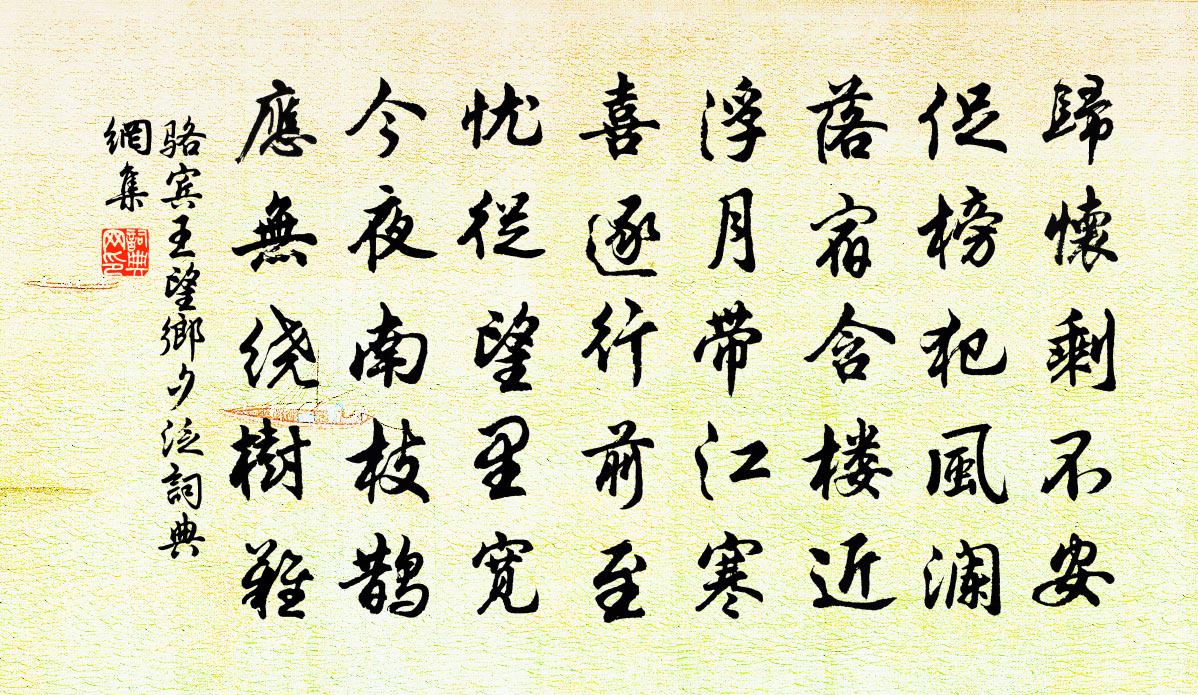 歸懷剩不安
促榜犯風澜
落宿含楼近
浮月带江寒
喜逐行前至
忧從望里寬
今夜南枝鹊
應無绕樹難
骆宾王望鄉夕泛詞典
網集
詞典
网印